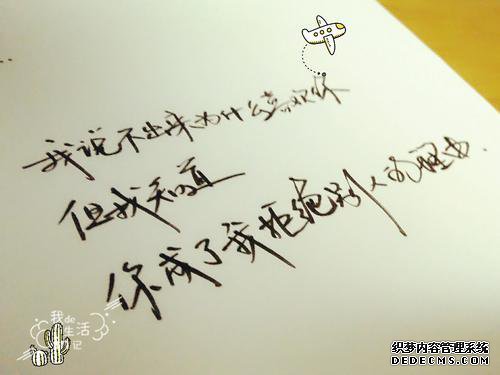 我说不出来为什么喜欢你
但我知道
你成了我拒绝别人的理由.
我de
生活
日记
织梦内容管理系统
DEDECMS.COM